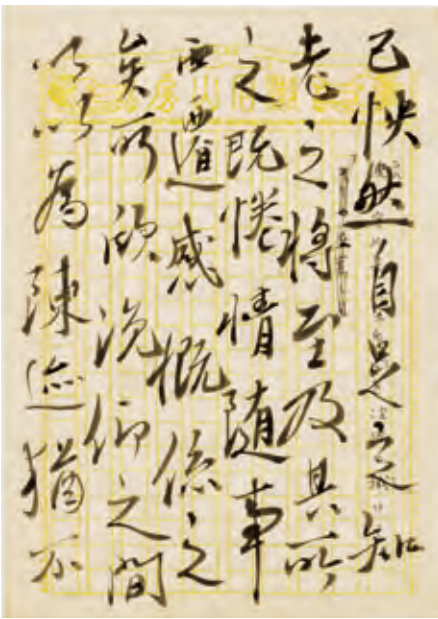 己怏然自足不知
老之將至及其所
之既惓情随事
遷感概係之
矣所欣俛仰之間
以以為陳迹猶不